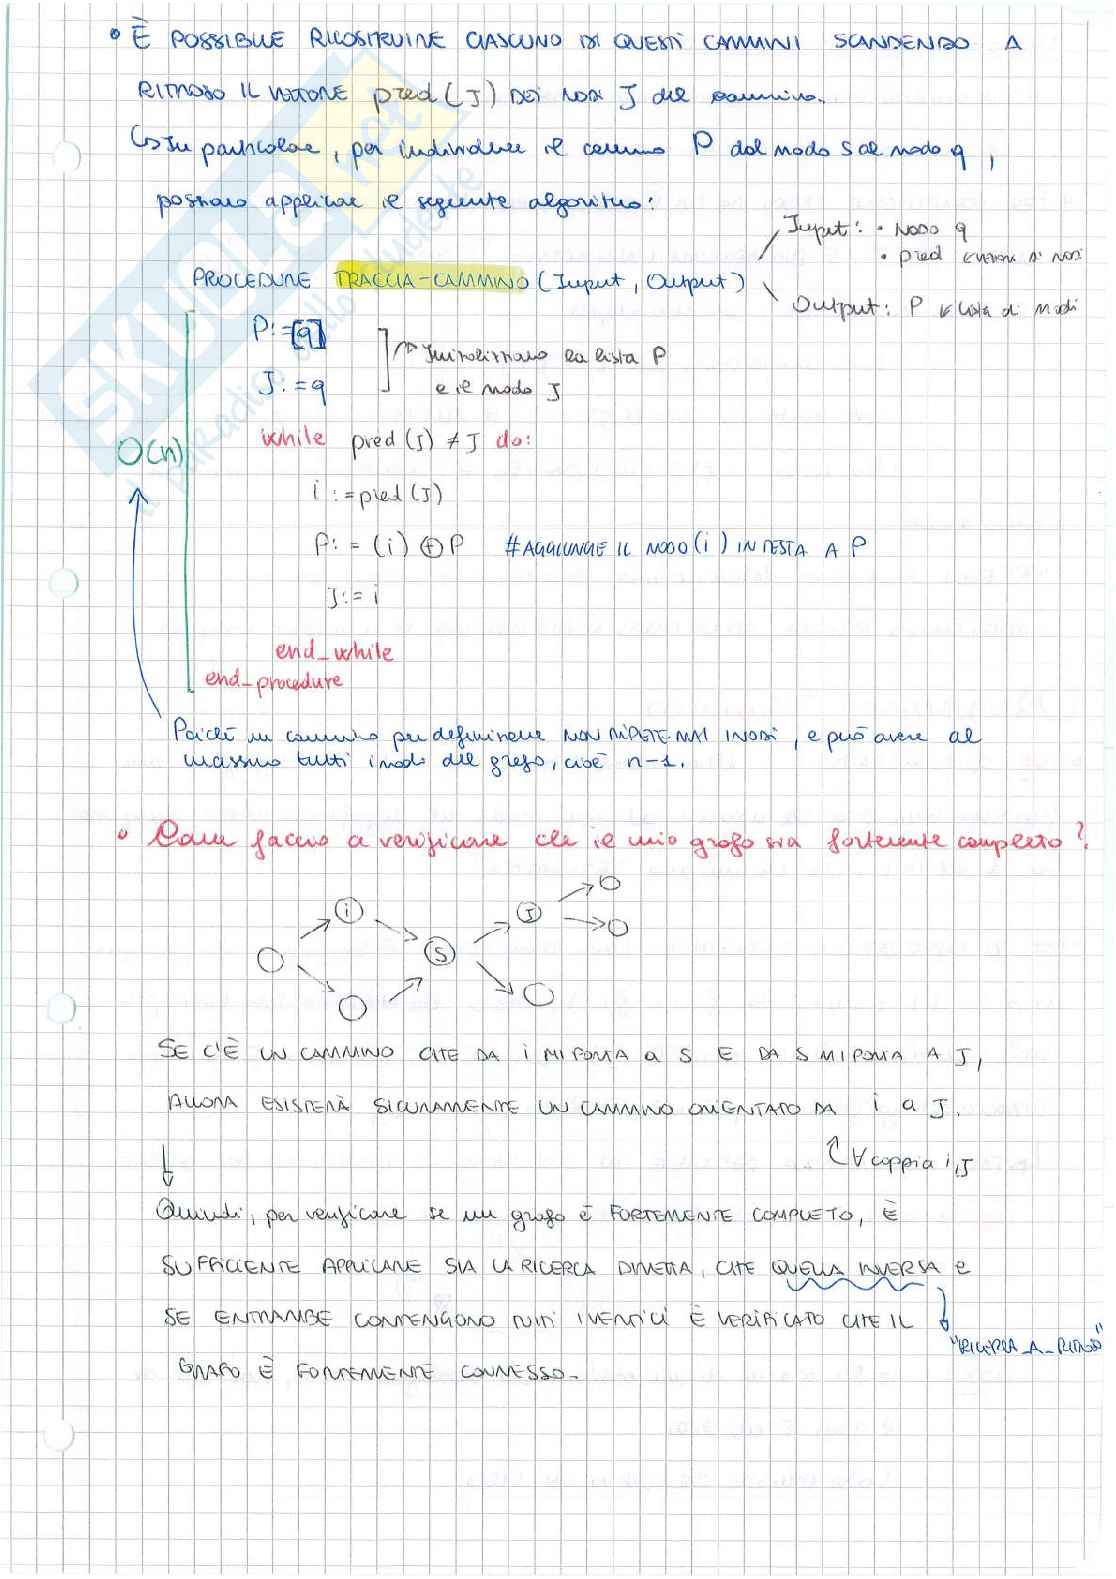 • È POSSIBILE RICOSTRUIRE CIASCUNO DI QUESTI CAMMINI SCANDENDO A
RITROSO IL VETTORE pred(J) DEI NODI J del cammino.
↳ In particolare, per individuare il cammino P dal nodo S al nodo q,
possiamo applicare il seguente algoritmo:
Input: • NODO q
• pred vettore di nodi
PROCEDURE TRACCIA-CAMMINO (Input, Output)
Output: P lista di nodi
P:=[q]
J:=q
Inizializziamo la lista P
e il nodo J
O(n)
while pred(J) ≠ J do:
i:=pred(J)
P:=(i)⊕P #AGGIUNGE IL NODO(i) IN TESTA A P
J:=i
end_while
end_procedure
Poiché un cammino per definizione NON RIPETE MAI I NODI, e può avere al
massimo tutti i nodi del grafo, cioè n-1.
• Come faccio a verificare che il mio grafo sia fortemente completo?
i
J
S
SE C'È UN CAMMINO CHE DA i MI PORTA a S E DA S MI PORTA A J,
ALLORA ESISTERÀ SICURAMENTE UN CAMMINO ORIENTATO DA i a J.
∀ coppia i,J
Quindi, per verificare se un grafo è FORTEMENTE COMPLETO, È
SUFFICIENTE APPLICARE SIA LA RICERCA DIRETTA, CHE QUELLA INVERSA e
SE ENTRAMBE CONTENGONO TUTTI I VERTICI È VERIFICATO CHE IL
"RICERCA_A_RITROSO"
GRAFO È FORTEMENTE CONNESSO.
SKUOLA.net
il paradiso dello studente